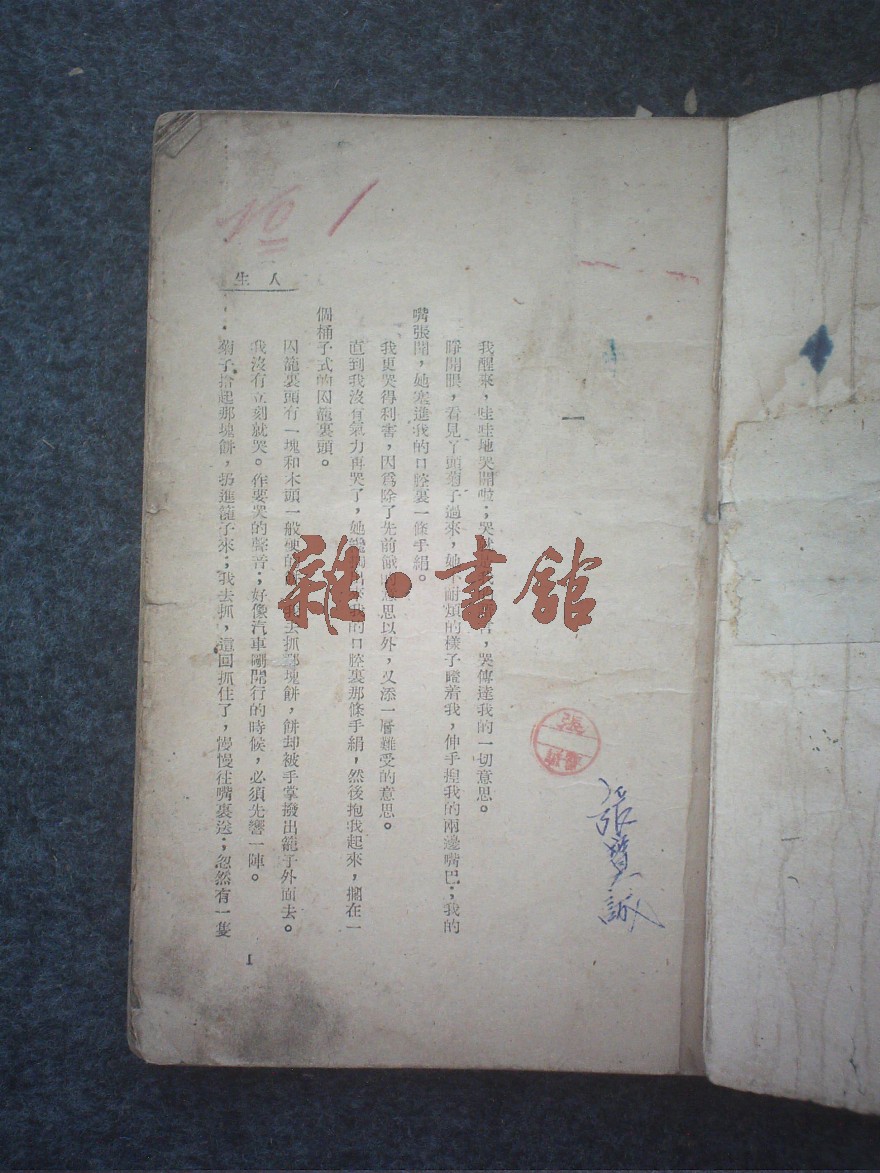 No 1
人生
一
我醒來，哇哇地哭開啦；哭，哭傳達我的一切意思。
睜開眼，看見丫頭菊子過來，她不耐煩的樣子瞪着我，伸手揑我的兩邊嘴巴；我的
嘴張開，她塞進我的口腔裏一條手絹。
我更哭得利害，因爲除了先前餓的意思以外，又添一層難受的意思。
直到我沒有氣力再哭了，她纔我的口腔裏那條手絹，然後抱我起來，擱在一
個桶子式的囚籠裏頭。
囚籠裏頭有一塊和木頭一般硬的去抓那塊餅，餅却被手掌撥出籠子外面去。
我沒有立刻就哭。作要哭的聲音；好像汽車剛開行的時候，必須先響一陣。
菊子拾起那塊餅，扔進籠子來；我去抓，這回抓住了，慢慢往嘴裏送；忽然有一隻
1
張
張寶誠
雜·書館